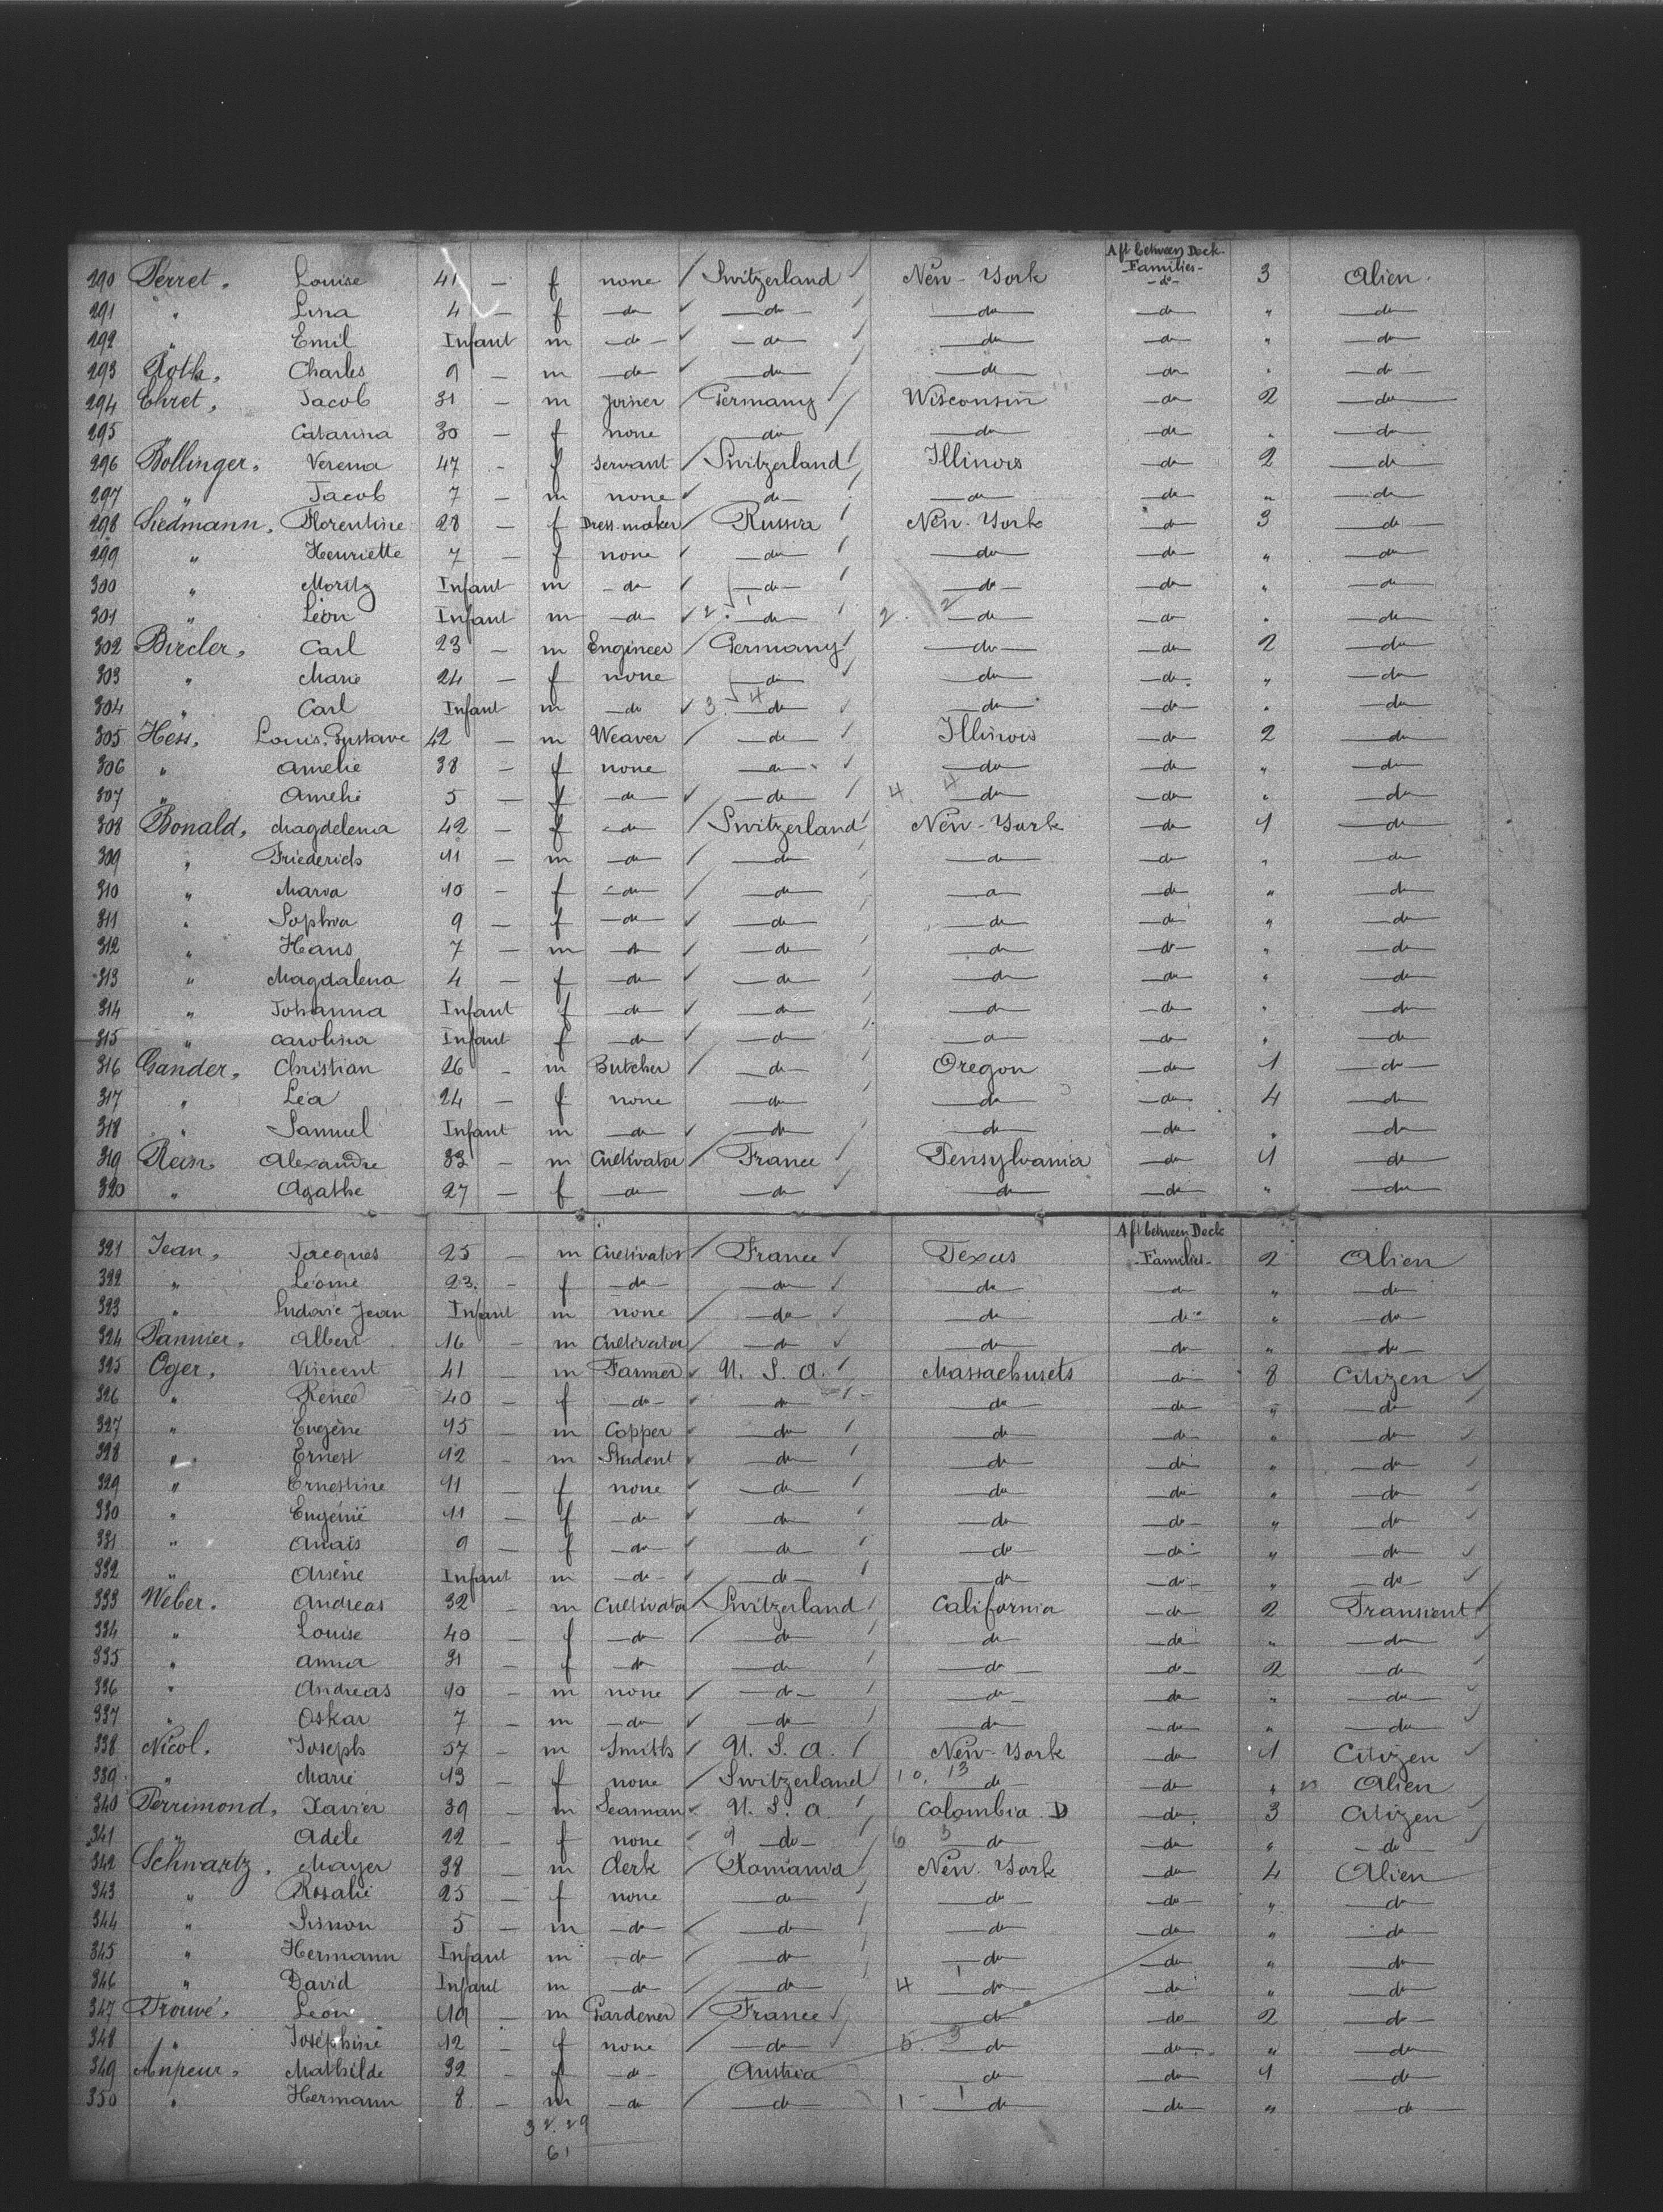 Aft between Deck
290 Perret, Louise 41 — f none / Switzerland / New-York -Families- -do- 3 Alien.
291 " Lina 4 — f do ✓ do do do " do
292 " Emil Infant m do ✓ do do do " do
293 Roth, Charles 9 — m do ✓ do do do " do
294 Ehret, Jacob 31 — m Joiner / Germany / Wisconsin do 2 do
295 Catarina 30 — f none do do do " do
296 Bollinger, Verena 47 - f Servant / Switzerland / Illinois do 2 do
297 " Jacob 7 — m none ✓ do do do " do
298 Siedmann, Florentine 28 — f Dress-maker / Russia / New-York do 3 do
299 " Henriette 7 — f none ✓ do do do " do
300 " Moritz Infant m do ✓ do do do " do
301 " Léon Infant m do ✓ 2. 1 do 2. 2 do do " do
302 Carl 23 — m Engineer / Germany / do do 2 do
303 " Marie 24 — f none do do do " do
304 " Carl Infant m do ✓ 3. 4 do do do " do
305 Hess, Louis Gustave 42 — m Weaver / do Illinois do 2 do
306 " Amelie 38 — f none do do do " do
307 " Amelie 5 — f do ✓ do 4. 4 do do " do
308 Bonald, Magdelena 42 — f do / Switzerland / New-York do 1 do
309 " Friederich 11 — m do / do do do " do
310 " Maria 10 — f do / do do do " do
311 " Sophia 9 — f do ✓ do do do " do
312 " Hans 7 — m do ✓ do do do " do
313 " Magdalena 4 — f do ✓ do do do " do
314 " Johanna Infant f do ✓ do do do " do
315 " Carolina Infant f do ✓ do do do " do
316 Gander, Christian 26 - m Butcher / do Oregon do 1 do
317 " Léa 24 — f none do do do 4 do
318 " Samuel Infant m do ✓ do do do " do
319 Alexandre 33 — m Cultivator / France / Pensylvania do 1 do
320 " Agathe 27 — f do do do do " do
Aft between Deck
321 Jean, Jacques 25 — m Cultivator / France / Texas -Families- 2 Alien
322 " Léonie 23. - f do do do do " do
323 " Ludovic Jean Infant m none / do do do " do
324 Pannier, Albert 16 - m Cultivator / do do do " do
325 Oger, Vincent 41 — m Farmer ✓ U. S. A. / Massachusets do 8 Citizen ✓
326 " Renée 40 — f do do do do " do
327 " Eugène 15 — m Copper do do do " do ✓
328 " Ernest 12 - m Student do do do " do
329 " Ernestine 11 — f none ✓ do do do " do
330 " Eugénie 11 — f do ✓ do do do " do
331 " Anaïs 9 — f do ✓ do do do " do ✓
332 " Arsène Infant m do ✓ do do do " do ✓
333 Weber, Andreas 32 - m Cultivator / Switzerland / California do 2 Transient ✓
334 " Louise 40 — f do / do do do " do
335 " Anna 31 — f do do do do 2 do
336 " Andreas 10 — m none / do do do " do
337 " Oskar 7 — m do ✓ do do do " do
338 Nicol, Joseph 57 — m Smith ✓ U. S. A. / New-York do 1 Citizen ✓
339 " Marie 13 — f none / Switzerland / 10. 13 do do " Alien
340 Perrimond, Xavier 39 - m Seaman ✓ U. S. A. / Colombia. D do 3 Citizen ✓
341 " Adèle 22 — f none 9 do 6 3 do do " do
342 Schwartz, Mayer 38 — m Clerk / Romania / New-York do 4 Alien
343 " Rosalie 25 — f none do do do " do
344 " Simon 5 — m do ✓ do do do " do
345 " Hermann Infant m do ✓ do do do " do
346 " David Infant m do ✓ do 4 1 do do " do
347 Trouvé, Léon 49 - m Gardener / France / do do 2 do
348 " Joséphine 12 — f none / do 5. 3 do do " do
349 Mathilde 32 — f do Austria do do 1 do
350 " Hermann 8 — m do do 1 - 1 do do " do
32. 29
61